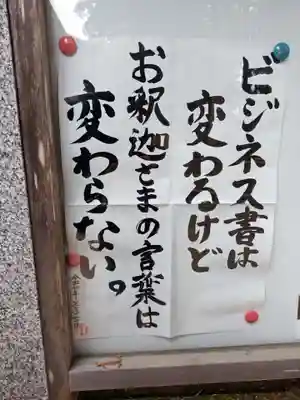 ビジネス書は
変わるけど
お釈迦さまの言葉は
変わらない。